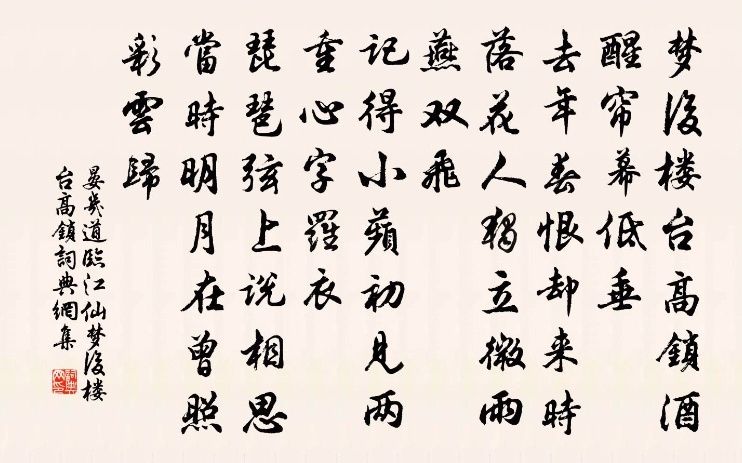 梦後楼台高鎖酒
醒帘幕低垂
去年春恨却来時
落花人獨立微雨
燕双飛
记得小蘋初见两
重心字羅衣
琵琶弦上说相思
當時明月在曾照
彩雲歸
晏幾道臨江仙梦後楼
台高鎖詞典網集